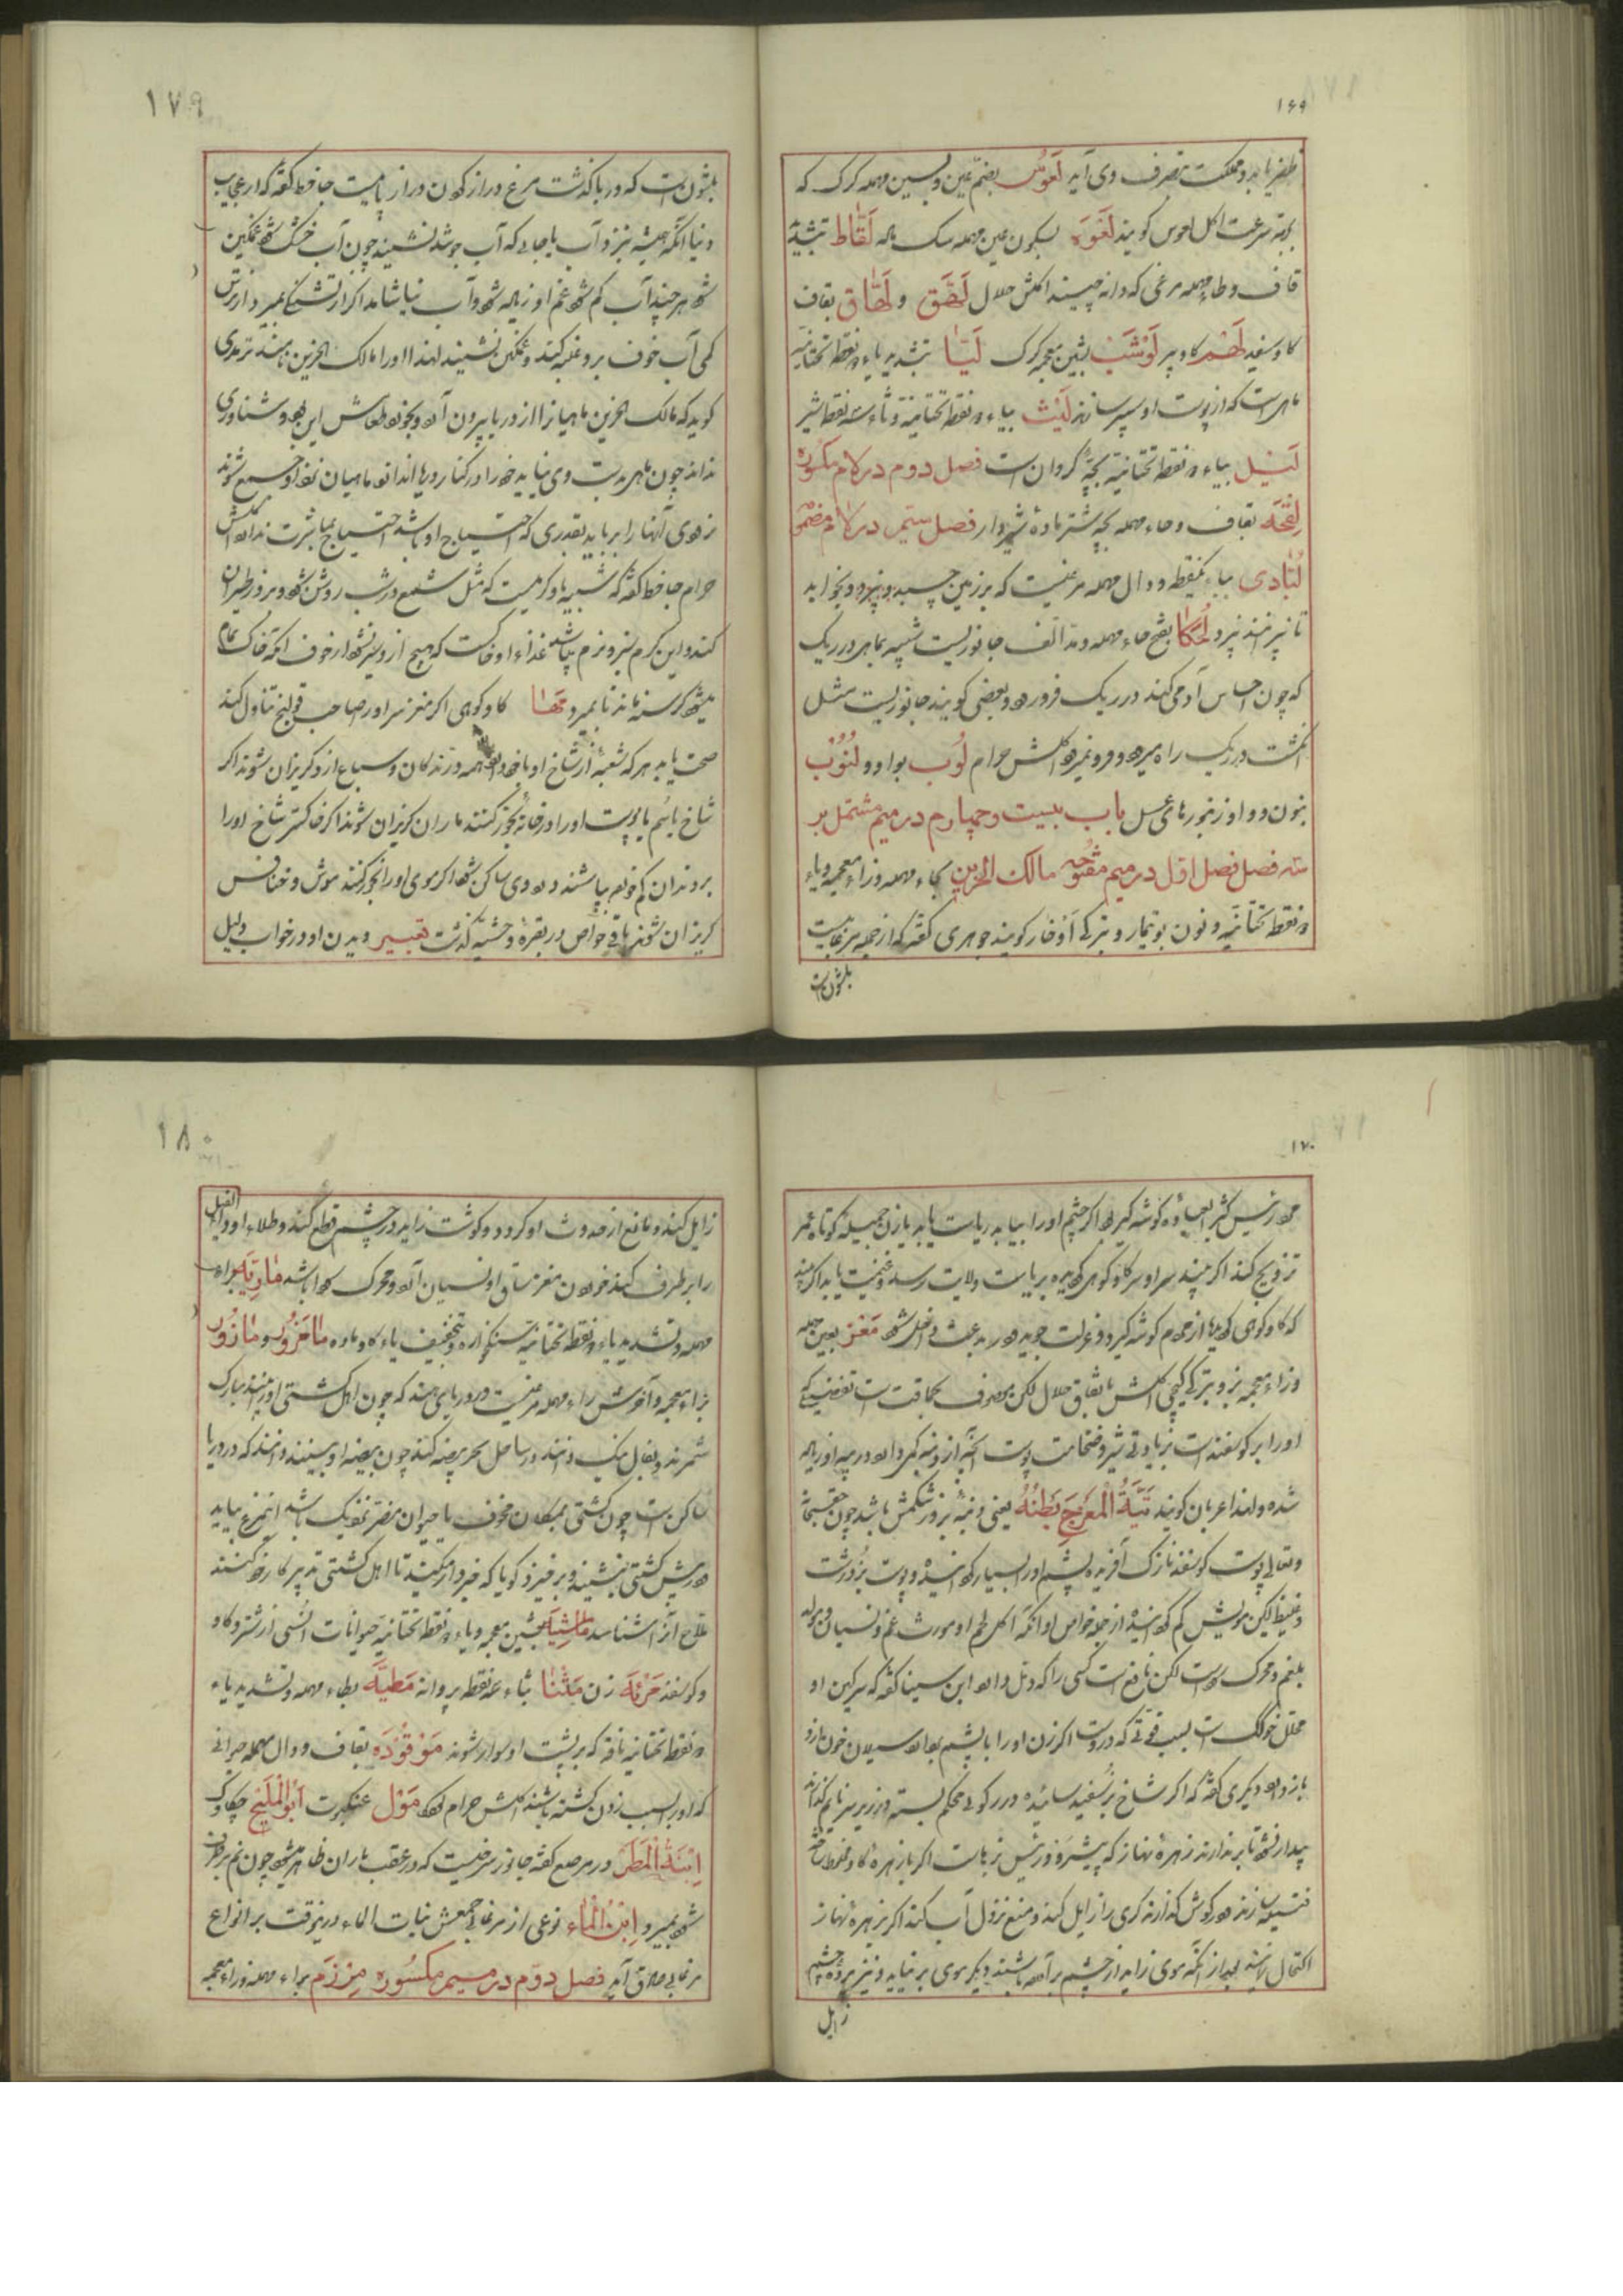 ۱۶۹
ظفر یابد و مملکت بتصرف وی آید لَعُوس بضم عین و بسین مهمله کرک که
بسرعت اکل لعوس کویند لَعْوَه بسکون عین مهمله سک ماده لَقّاط بتشدید
قاف و طاء مهمله مرغی که دانه چیند اکلش حلال لَهَق و لَهّاق بقاف
کاو سفید لَهْم کاو پیر لَوْشَب بشین معجمه کرک لَیّا بتشدید یاء دو نقطه تحتانیه
ماهی است که از پوست او سپر سازند لَیْث بیاء دو نقطه تحتانیه و ثاء سه نقطه شیر
لَیْل بیاء دو نقطه تحتانیه بچهٔ کروان است فصل دوم در لام مکسوره
لِقْحَه بقاف و حاء مهمله بچه شتر ماده شیردار فصل سیم در لام مضموم
لُبّادی بباء یکنقطه و دال مهمله مرغیست که بر زمین چسبد و نپرد و بخوابد
تا نپرانند نپرد لُحَکا بفتح حاء مهمله و مد الف جانوریست شبیه بماهی در ریک
که چون احساس آدمی کند در ریک فرو رود و بعضی کویند جانوریست مثل
انکشت در ریک راه میرود و فرو نمیرود اکلش حرام لُوب بواو و لُنُوب
بنون و واو زنبورهای عسل باب بیست و چهارم در میم مشتمل بر
سه فصل فصل اول در میم مفتوحه مالک الحزین بحاء مهمله و زاء معجمه و یاء
دو نقطه تحتانیه و نون بوتیمار و بترکی آوخار کویند جوهری کفته که از جمله مرغابیست
بلشون است
۱۷۹
بلشون است که در با کذشت مرغ دراز کردن دراز پا نیست جاحظ کفته که از عجایب
دنیا آنکه همیشه نزد آب یا جایی که آب جوشد نشیند چون آب خشک شود غمکین
شود هر چند آب کم شود غم او زیاده شود و آب نیاشامد اکر از تشنکی بمیرد از ترس
کمی آب خوف برو غلبه کند و غمکین نشیند لهذا او را مالک الحزین نامند ترمدی
کوید که مالک الحزین ماهیانرا از دریا بیرون آورد و بخورد طعامش این بود و شناوری
نداند چون ماهی بدست وی نیاید خود را در کنار دریا اندازد ماهیان نزد او جمع شوند
زود وی آنها را برباید بقدری که احتیاج او باشد احتیاج بمباشرت ندارد اکلش
حرام جاحظ کفته که شبیه باو کرمیست که مثل شمع در شب روشن شود و بروز طیران
کند و این کرم سبز و نرم باشد غذاء او خاکست که هیچ ازو سیر نشود از خوف آنکه خاک تمام
میشود کرسنه ماند تا بمیرد مَها کاو کوهی اکر مغز سر او را صاحب قولنج تناول کند
صحت یابد هر که شعبهٔ از شاخ او با خود دارد همه درندکان و سباع ازو کریزان شوند اکر
شاخ یا سم یا پوست او را در خانه بخور کنند ماران کریزان شوند اکر خاکستر شاخ او را
بر دندان کم خورده پاشند درد وی ساکن شود اکر موی او را بخور کنند موش و خنافس
کریزان شوند باقی خواص در بقرهٔ وحشیه کذشت تعبیر دیدن او در خواب دلیل
۱۷۰
مرد رئیس کثیر العباده کوشه کیر بود اکر چشم او را بیابد ریاست یابد یا زن جمیلهٔ کوتاه عمر
تزویج کند اکر بیند سر او سر کاو کوهی کردیده بریاست و ولایت رسد و غنیمت یابد اکر بیند
که کاو کوهی کردید از مردم کوشه کیرد و عزلت جوید و در بدعت داخل شود مَعْز بعین مهمله
و زاء معجمه بز و بترکی کچی اکلش باتفاق حلال لکن موصوف بحماقت است تفضیلی که
او را بر کوسفند است بزیادتی شیر و ضخامت پوست آنچه از دنبه کم دارد در پیه او زیاده
شده و لهذا عربان کویند تیة المعز یخرج بطنه یعنی دنبه بز در شکمش باشد چون حق سبحانه
و تعالی پوست کوسفند نازک آفریده پشم او را بسیار کردانیده و پوست بز درشت
و غلیظ لیکن مویش کم کردانیده از جمله خواص او آنکه اکل لحم او مورث غم و نسیان و مولد
بلغم و محرک سوداست لکن نافع است کسی را که دمل دارد ابن سینا کفته که سرکین او
محلل خنازیر است بسبب قوتی که در وست اکر زن او را با پشم بردارد سیلان خون ازو
باز دارد دیکری کفته که اکر شاخ بز سفید سائیده در رکوئی محکم بسته در زیر سر نایم کذارند
بیدار نشود تا بر ندارند زهرهٔ نهاز که پیشرو و رئیس بزهاست اکر با زهرهٔ کاو مخلوط ساخته
فتیله سازند در کوش کذارند کری را زایل کند و منع نزول آب کند اکر زهرهٔ نهاز
اکتحال نمایند بعد از آنکه موی زاید از چشم بر آورده باشند دیکر موی بر نیاید و نیز پردهٔ چشم
زایل
۱۸۰
زایل کند و مانع از حدوث او کردد و کوشت زاید در چشم قطع کند و طلاء او داء الفیل
را برطرف کند خوردن مغز ساق او نسیان آورد و محرک سودا باشد ماریّه براء
مهمله و تشدید یاء دو نقطه تحتانیه سنکخواره و بتخفیف یاء کاو ماده ماحَزور و مازور
بزاء معجمه و آخرش راء مهمله مرغیست در دریای هند که چون اهل کشتی او را بینند مبارک
شمرند و بفال نیک دانند در ساحل بحر بیضه کند چون بیضه او بینند دانند که در دریا
ساکن است چون کشتی بمکان مخوف یا حیوان مضر نزدیک باشد این مرغ بیاید
در پیش کشتی بنشیند و برخیزد کویا که خبردار میکند تا اهل کشتی تدبیر کار خود کنند
ملاح آنرا شناسد ماشیه بشین معجمه و یاء دو نقطه تحتانیه حیوانات انسی از شتر و کاو
و کوسفند مَرْئَه زن مَثْنا بثاء سه نقطه پروانه مَطیّه بطاء مهمله و تشدید یاء
دو نقطه تحتانیه ناقه که بر پشت او سوار شوند مَوْقوذَه بقاف و دال مهمله حیوانی
که او را بسبب زدن کشته باشند اکلش حرام بود مَوْل عنکبوت اَبُوالْمَلیح چکاوک
اِبْنَةُ الْمَطَر در مرصع کفته جانور سرخیست که در عقب باران ظاهر میشود چون نم برطرف
شود بمیرد اِبْنُ الْماء نوعی از مرغابی جمعش بنات الماء درینوقت بر انواع
مرغابی صادق آید فصل دوم در میم مکسوره مِرْزَم براء مهمله و زاء معجمه